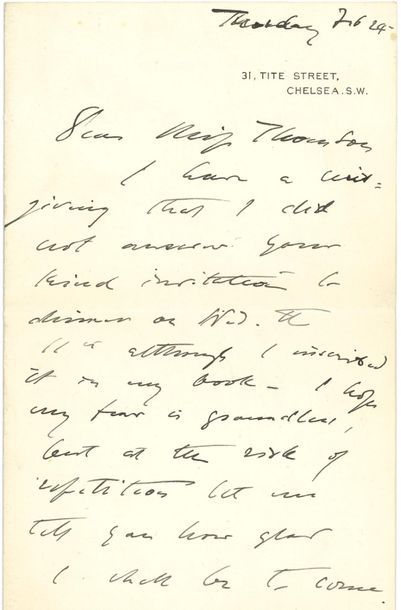 Thursday Feb 24
31, TITE STREET,
CHELSEA. S.W.
Dear Miss Thomson
I have a mis=
giving that I did
not answer your
kind invitation to
dinner on Wed. the
11th although I inscribed
it in my book - I hope
my fear is groundless,
but at the risk of
repetition let me
tell you how glad
I shall be to come.